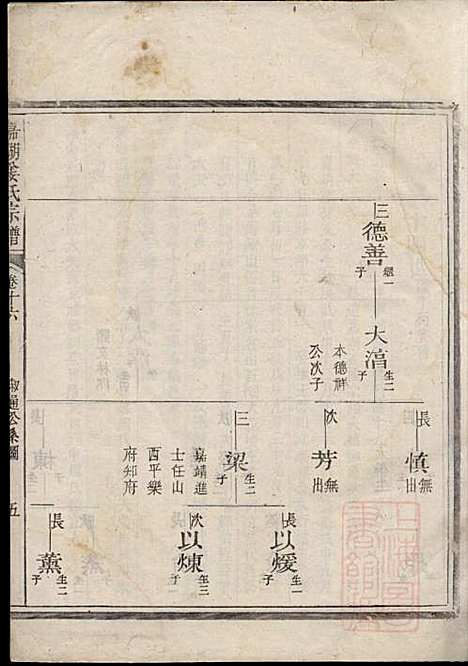 三
德善
繼一子
大滈
生二子
本德祥
公次子
長
慎
無出
次
芳
無出
三
梁
生二子
嘉靖進
士任山
西平樂
府知府
長
以煖
生一子
次
以煉
生三子
長
薰
生二子
姜氏宗譜
卷十六
淑通公系圖
五